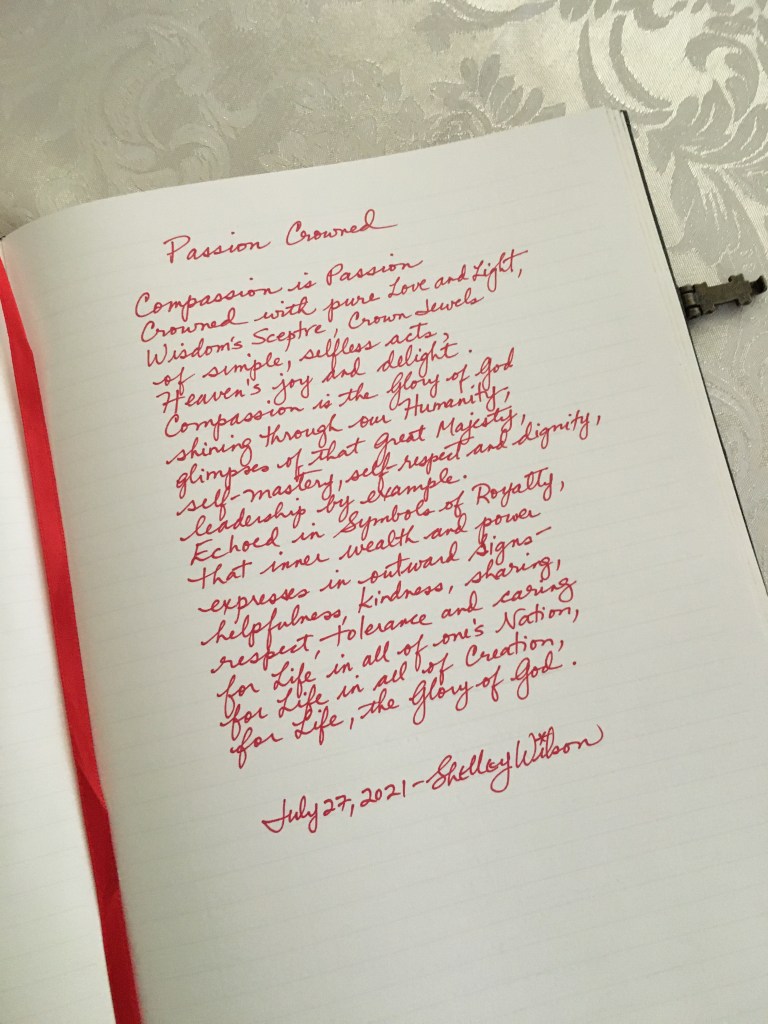 Passion Crowned
Compassion is Passion
Crowned with pure Love and Light,
Wisdom's Sceptre, Crown Jewels
of simple, selfless acts,
Heaven's joy and delight.
Compassion is the Glory of God
shining through our Humanity,
glimpses of that Great Majesty,
self-mastery, self-respect and dignity,
leadership by example.
Echoed in Symbols of Royalty,
that inner wealth and power
expresses in outward signs-
helpfulness, kindness, sharing,
respect, tolerance and caring
for Life in all of one's Nation,
for Life in all of Creation,
for Life, the Glory of God.
July 27, 2021-Shelley Wilson